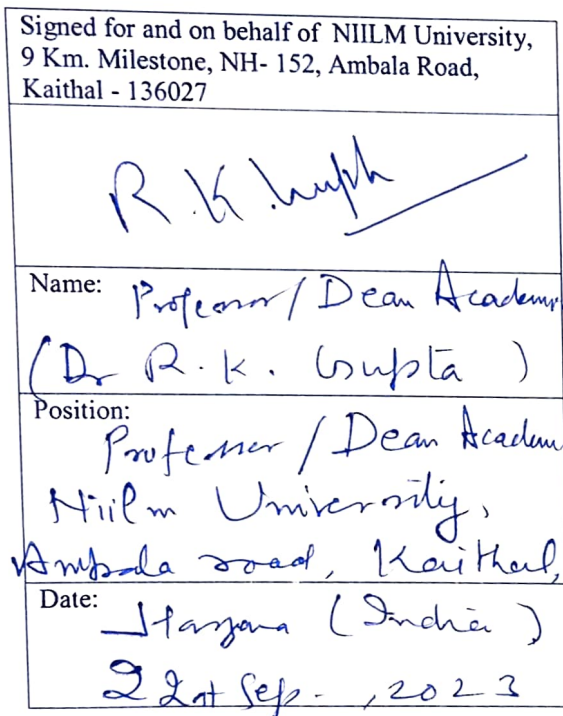 Signed for and on behalf of NIILM University,
9 Km. Milestone, NH- 152, Ambala Road,
Kaithal - 136027
R.K. Gupta
Name: Professor / Dean Academi
(Dr R. K. Gupta )
Position:
Professor / Dean Academ
Niilm University,
Ambala road, Kaithal,
Date: Haryana (India )
22nt Sep - , 2023